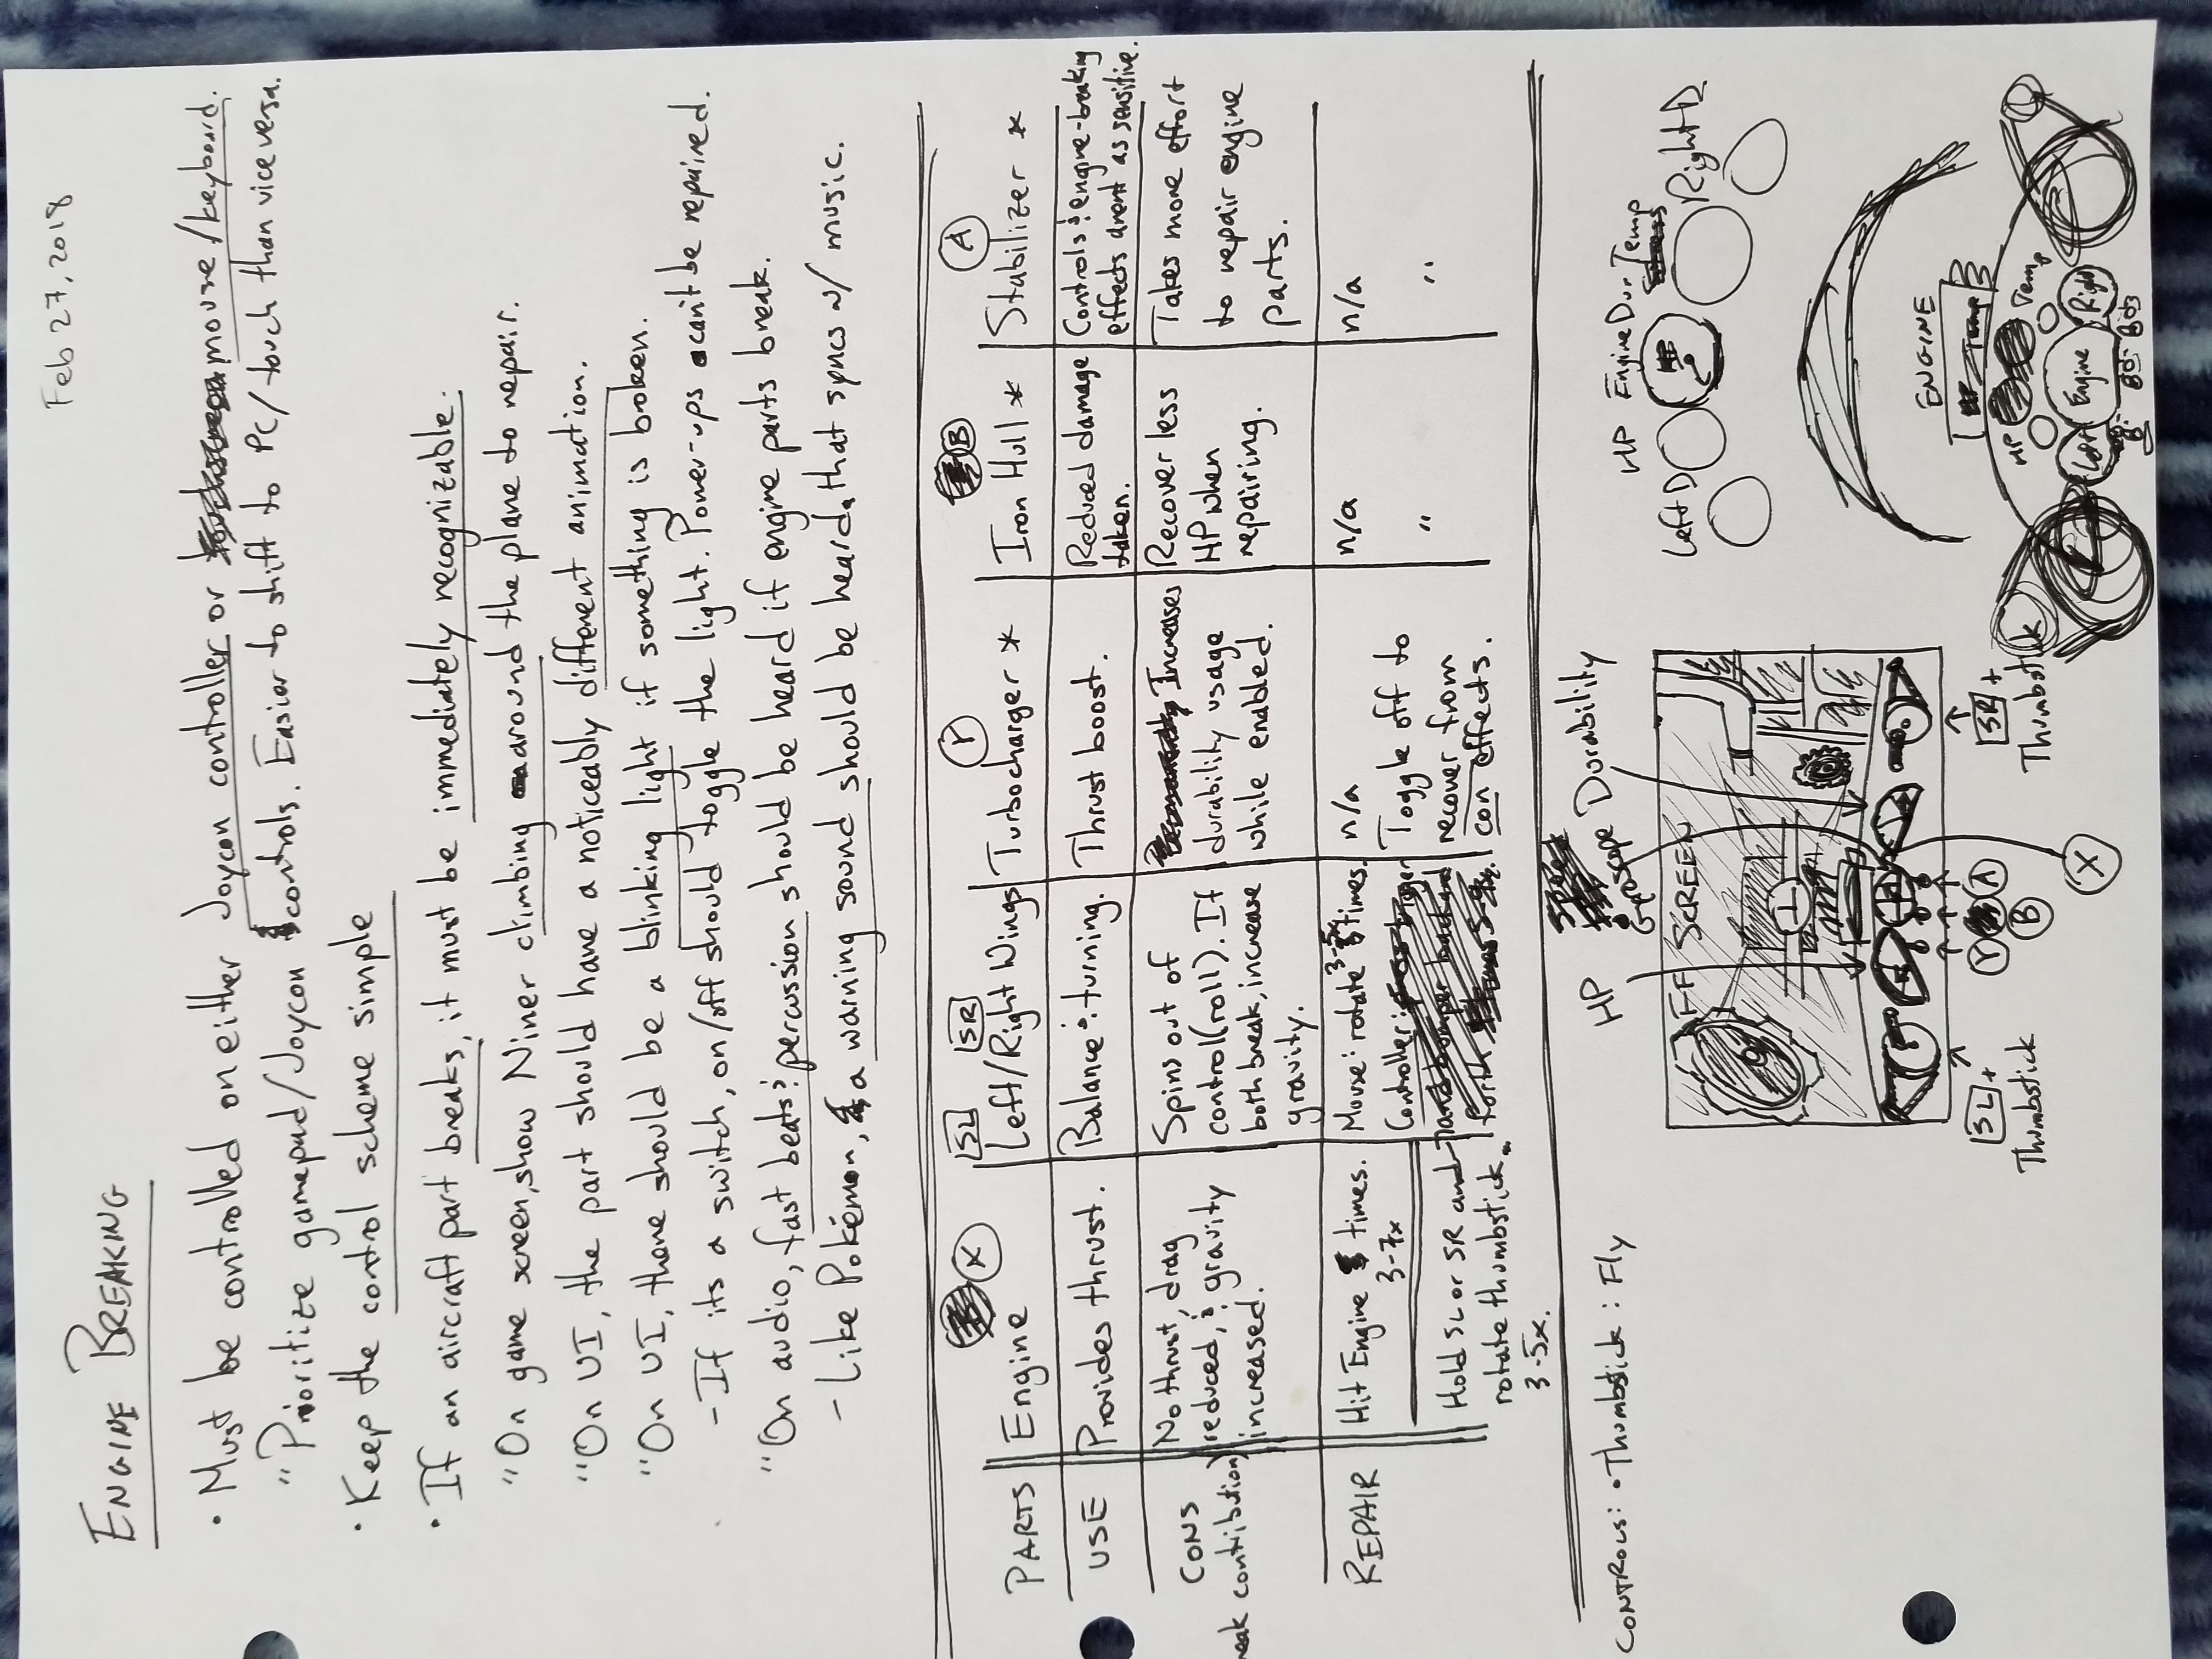 Feb 27, 2018
ENGINE BREAKING
• Must be controlled on either Joycon controller or mouse/keyboard.
" Prioritize gamepad/Joycon controls. Easier to shift to PC/touch than vice versa.
• Keep the control scheme simple
• If an aircraft part breaks, it must be immediately recognizable.
" On game screen, show Niner climbing around the plane to repair.
" On UI, the part should have a noticeably different animation.
" On UI, there should be a blinking light if something is broken.
- If its a switch, on/off should toggle the light. Power-ups can't be repaired.
" On audio, fast beats & percussion should be heard if engine parts break.
- Like Pokémon, a warning sound should be heard that syncs w/ music.
X SL SR Y B A
PARTS Engine Left/Right Wings Turbocharger * Iron Hull * Stabilizer *
USE
Provides thrust.
Balance & turning.
Thrust boost.
Reduced damage
taken.
Controls & engine-breaking
effects arent as sensitive.
CONS
contribution)
No thrust, drag
reduced, & gravity
increased.
Spins out of
control (roll). If
both break, increase
gravity.
Increases
durability usage
while enabled.
Recover less
HP when
repairing.
Takes more effort
to repair engine
parts.
REPAIR
Hit Engine times.
3-7x
Hold SL or SR and
rotate thumbstick.
3-5x.
Mouse: rotate 3-5x times.
Controller:
n/a
Toggle off to
recover from
con effects.
n/a
"
n/a
"
CONTROLS: • Thumbstick: Fly
HP Gyroscope Durability
OFF SCREEN
SL + Thumbstick
Y B A
X
SR + Thumbstick
HP Engine Dur Temp
Left D Right D
ENGINE
HP Temp
Left Engine Right